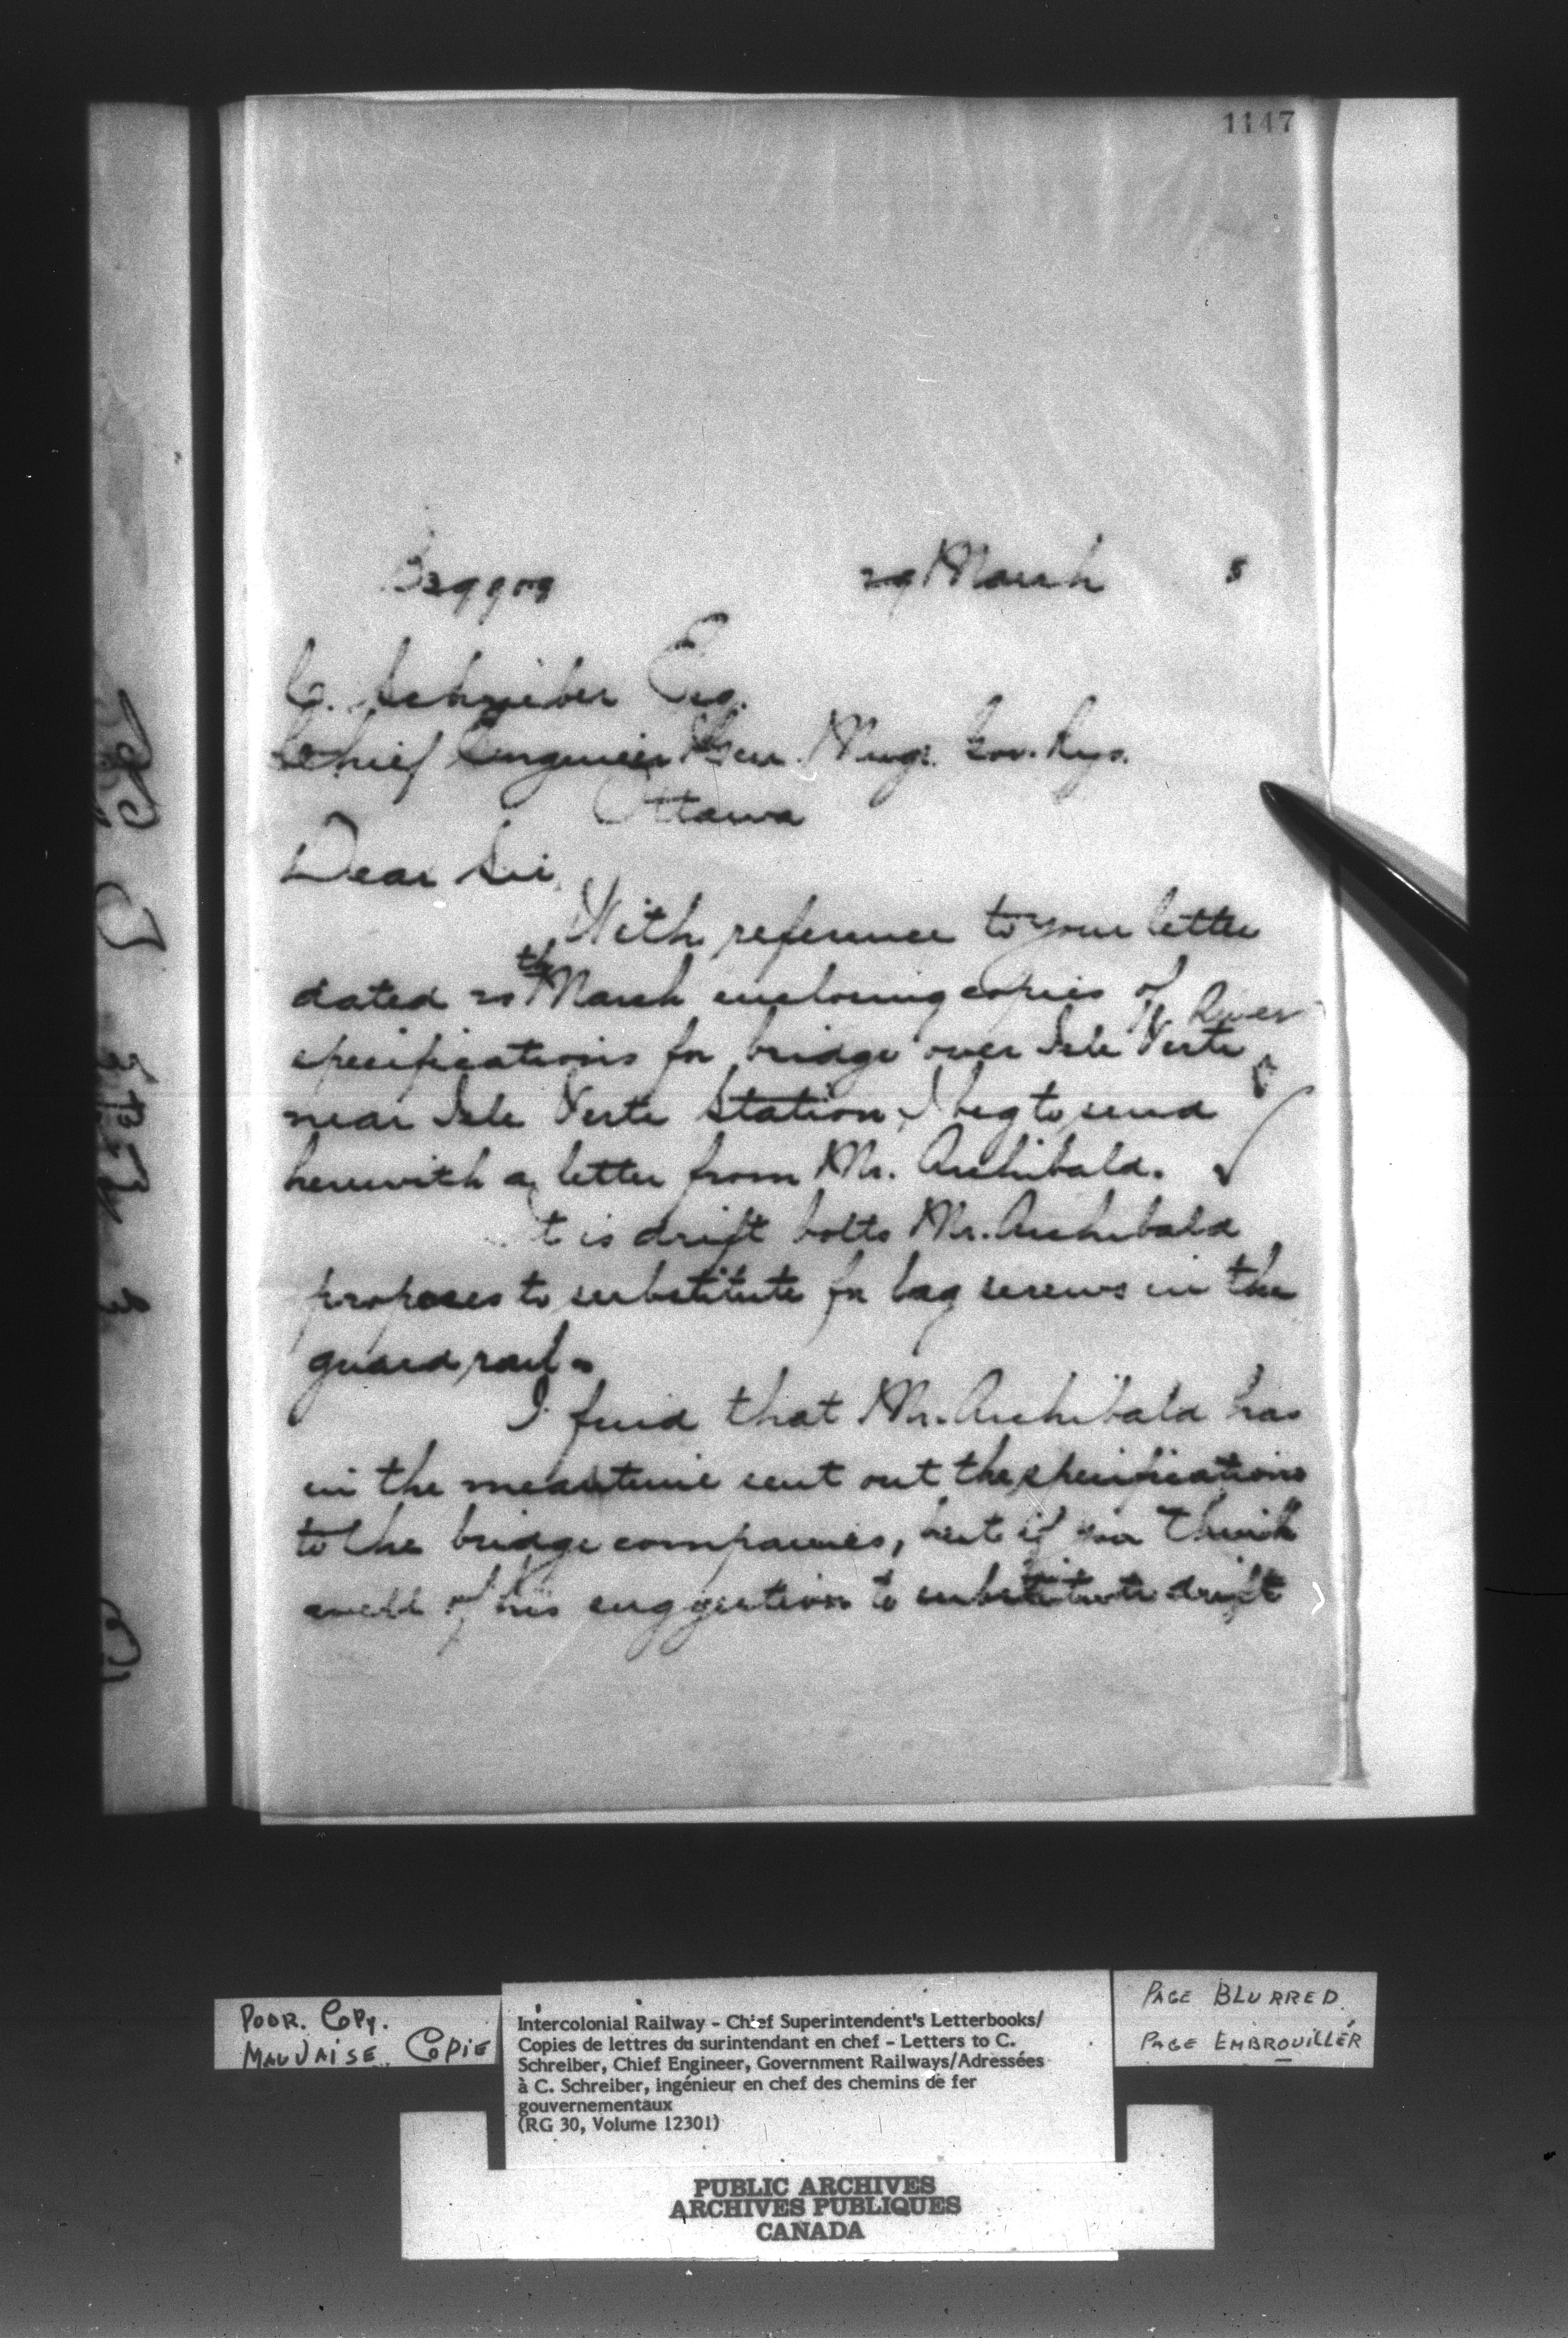 1147
29 March 5
C. Schreiber Esq.
Chief Engineer & Gen. Mngr. Gov. Rys.
Ottawa
Dear Sir,
With reference to your letter
dated 20th March enclosing copies of
specifications for bridge over Isle Verte River
near Isle Verte Station, I beg to send
herewith a letter from Mr. Archibald.
It is drift bolts Mr. Archibald
proposes to substitute for lag screws in the
guard rail.
I find that Mr. Archibald has
in the meantime sent out the specifications
to the bridge companies, but if you think
well of his suggestion to substitute drift
POOR. COPY.
MAUVAISE COPIE
Intercolonial Railway - Chief Superintendent's Letterbooks/
Copies de lettres du surintendant en chef - Letters to C.
Schreiber, Chief Engineer, Government Railways/Adressées
à C. Schreiber, ingénieur en chef des chemins de fer
gouvernementaux
(RG 30, Volume 12301)
PAGE BLURRED
PAGE EMBROUILLÉR
PUBLIC ARCHIVES
ARCHIVES PUBLIQUES
CANADA